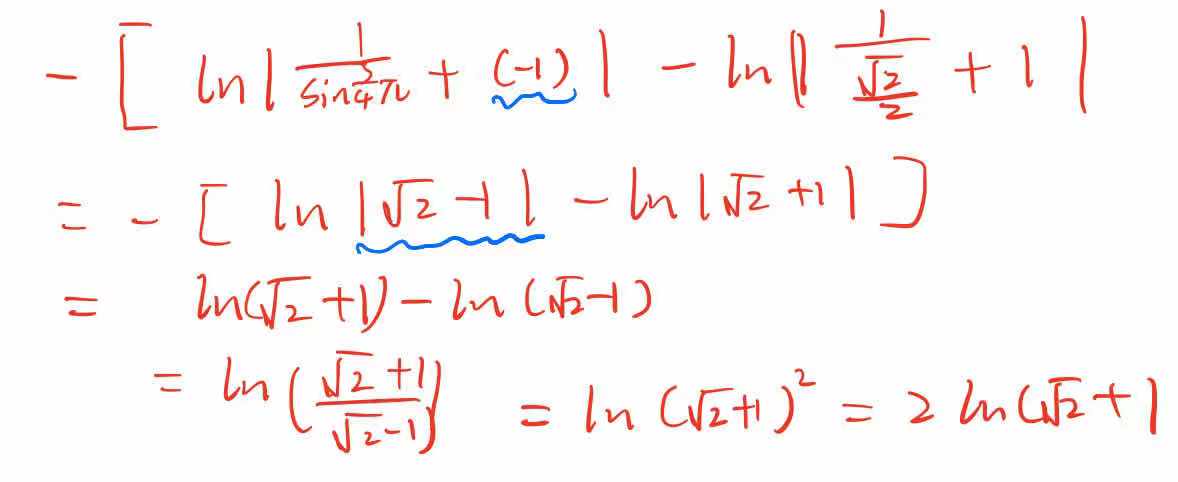 - [ ln| 1/(sin 3/4 π) + (-1) | - ln| 1/(√2/2) + 1 |
= - [ ln |√2 - 1| - ln |√2 + 1| ]
= ln(√2 + 1) - ln (√2 - 1)
= ln ( (√2 + 1)/(√2 - 1) ) = ln (√2 + 1)² = 2 ln(√2 + 1